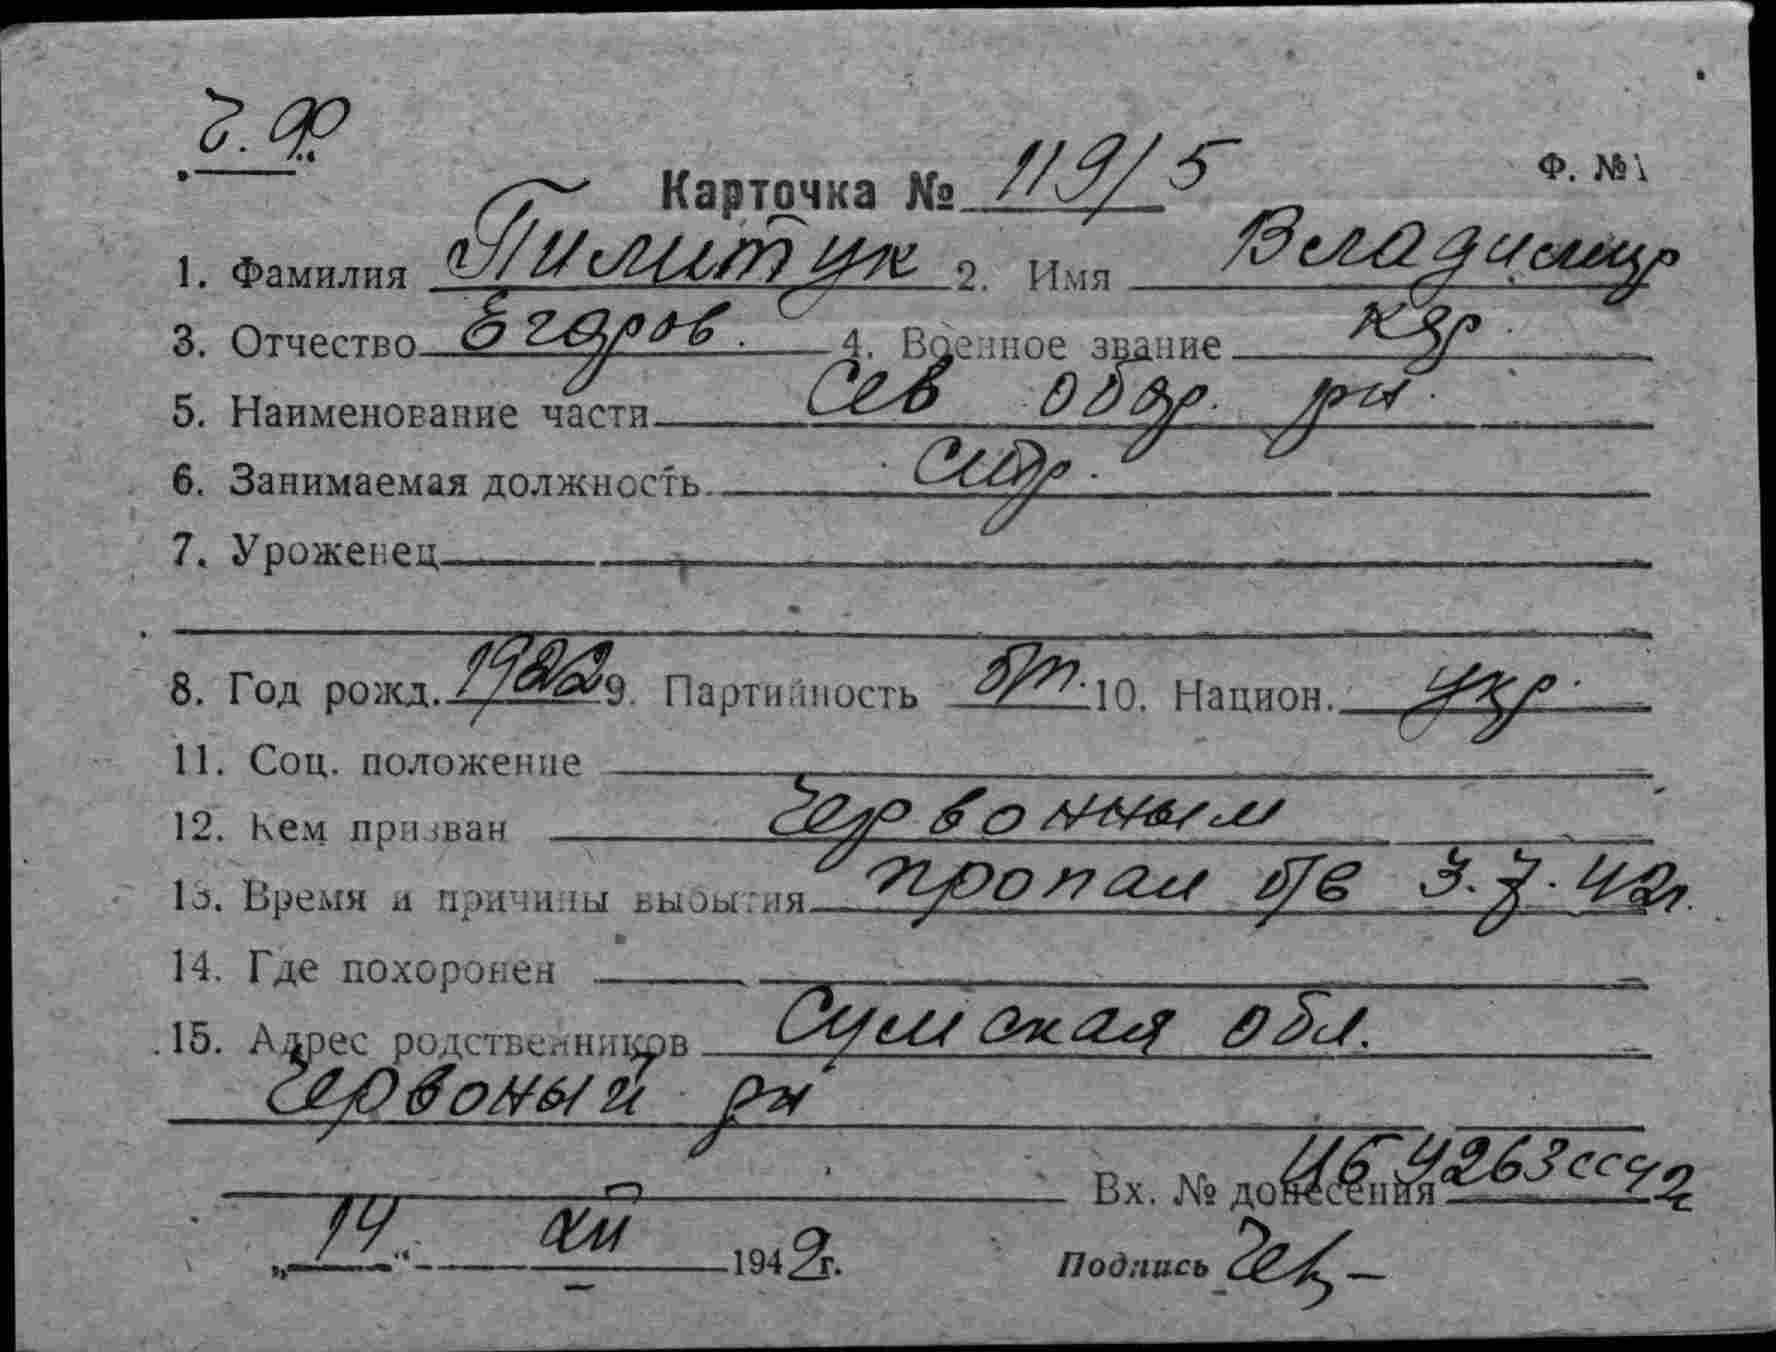 Ч.Ф.
Карточка № 119/5 Ф. №1
1. Фамилия Пилитук 2. Имя Владимир
3. Отчество Егоров. 4. Военное звание кр.
5. Наименование части Сев обор. рн.
6. Занимаемая должность стр.
7. Уроженец
8. Год рожд. 1922 9. Партийность б/п. 10. Национ. укр.
11. Соц. положение
12. Кем призван Червонным
13. Время и причины выбытия пропал б/в 3.7.42г.
14. Где похоронен
15. Адрес родственников Сумская обл.
Червоный рн
Вх. № донесения 4263сс42
„14“ XII 1942г. Подпись